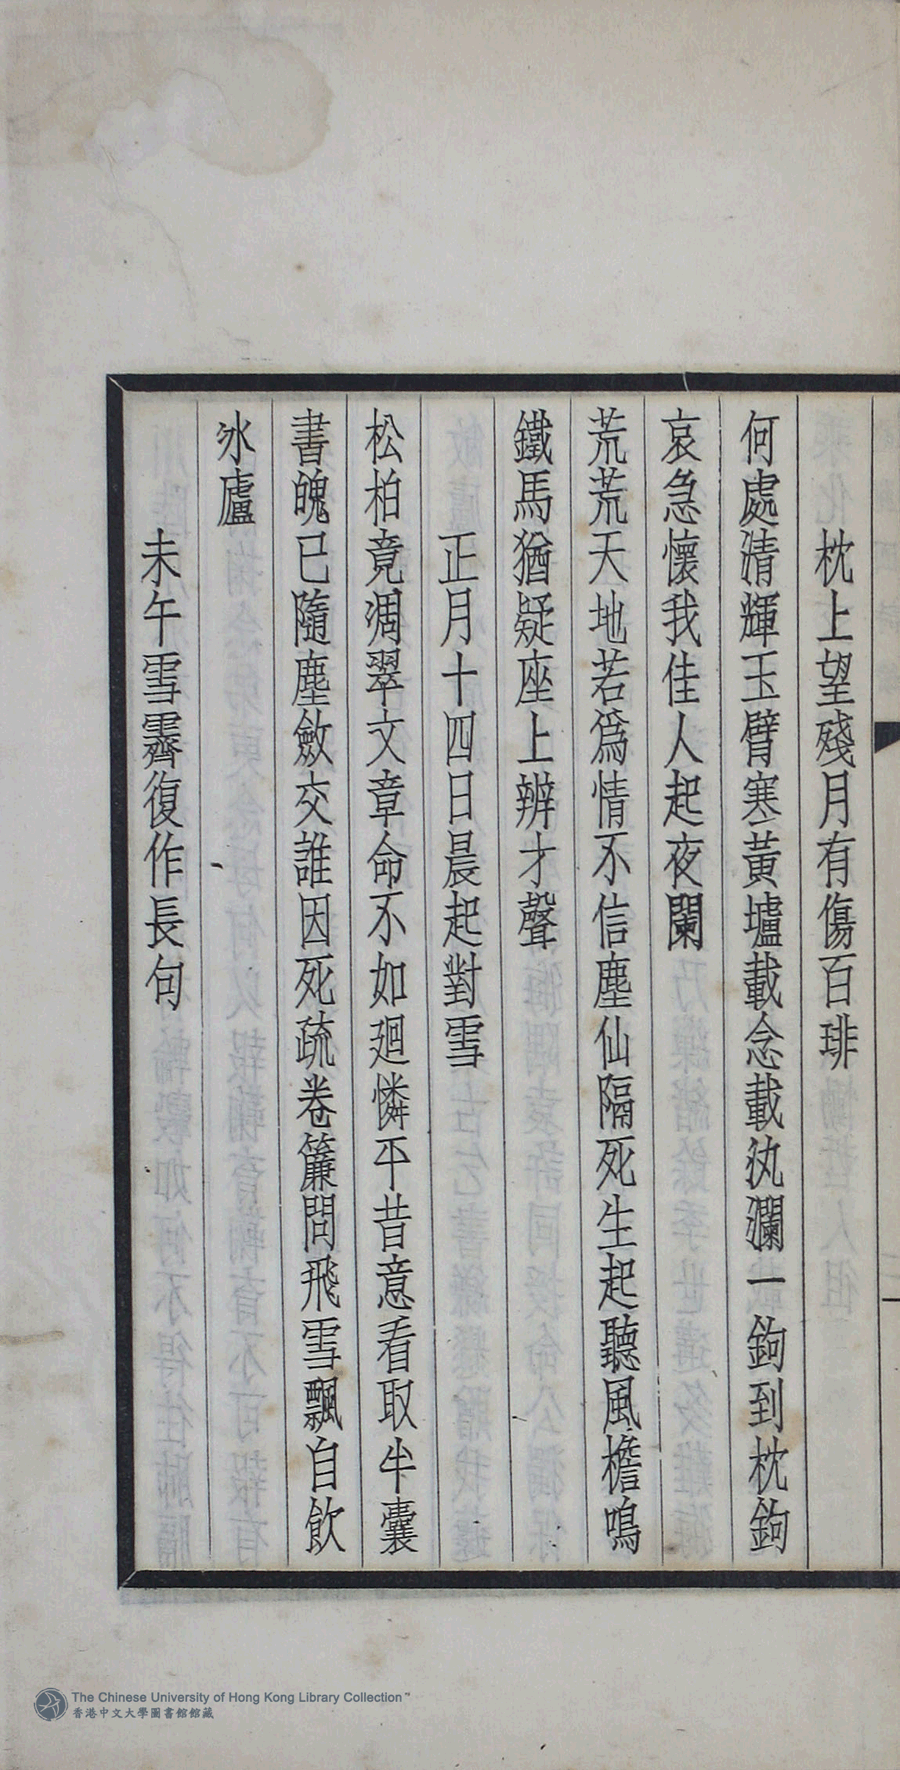 枕上望殘月有傷百琲
何處清輝玉臂寒黃壚載念載汍瀾一鉤到枕鉤
哀急懷我佳人起夜闌
荒荒天地若爲情不信塵仙隔死生起聽風檐鳴
鐵馬猶疑座上辨才聲
正月十四日晨起對雪
松柏竟凋翠文章命不如迴憐平昔意看取半囊
書魄已隨塵斂交誰因死疏卷簾問飛雪飄自飲
冰廬
未午雪霽復作長句
The Chinese University of Hong Kong Library Collection
香港中文大學圖書館館藏